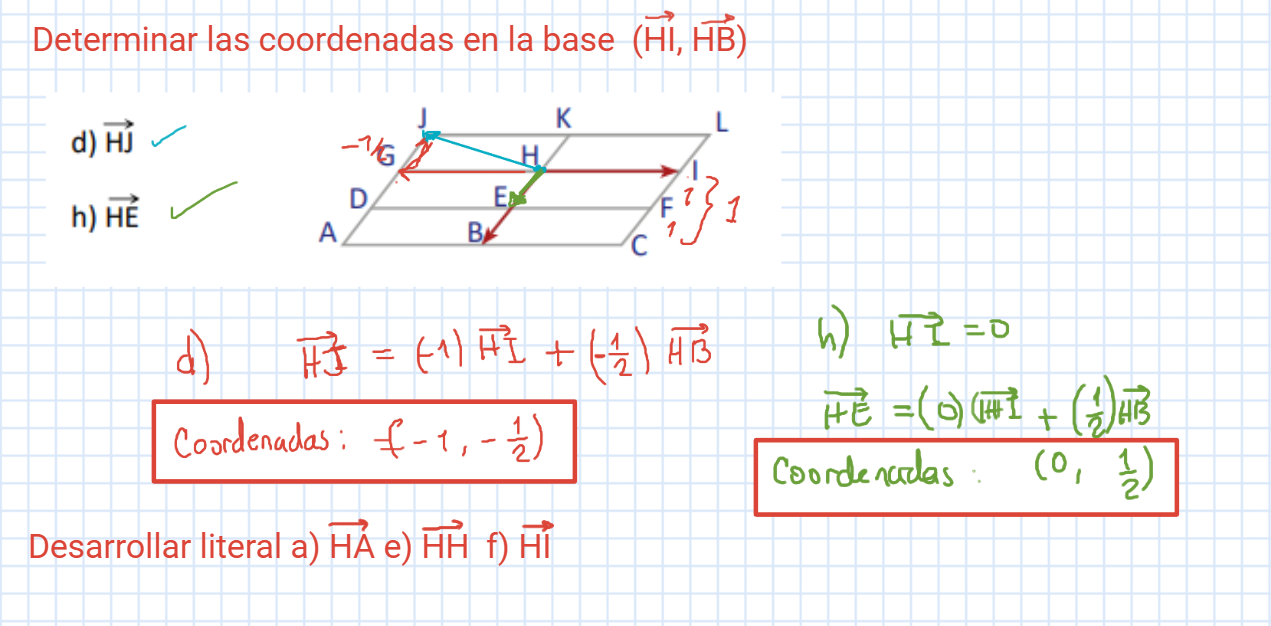 Determinar las coordenadas en la base (HI, HB)
d) HJ
h) HE
J K L
-1/2 G H I
D E F 1 } 1
A B C 1
d) HJ = (-1) HI + (-1/2) HB
Coordenadas: (-1, -1/2)
h) HI = 0
HE = (0) (HI + (1/2) HB
Coordenadas : (0, 1/2)
Desarrollar literal a) HA e) HH f) HI